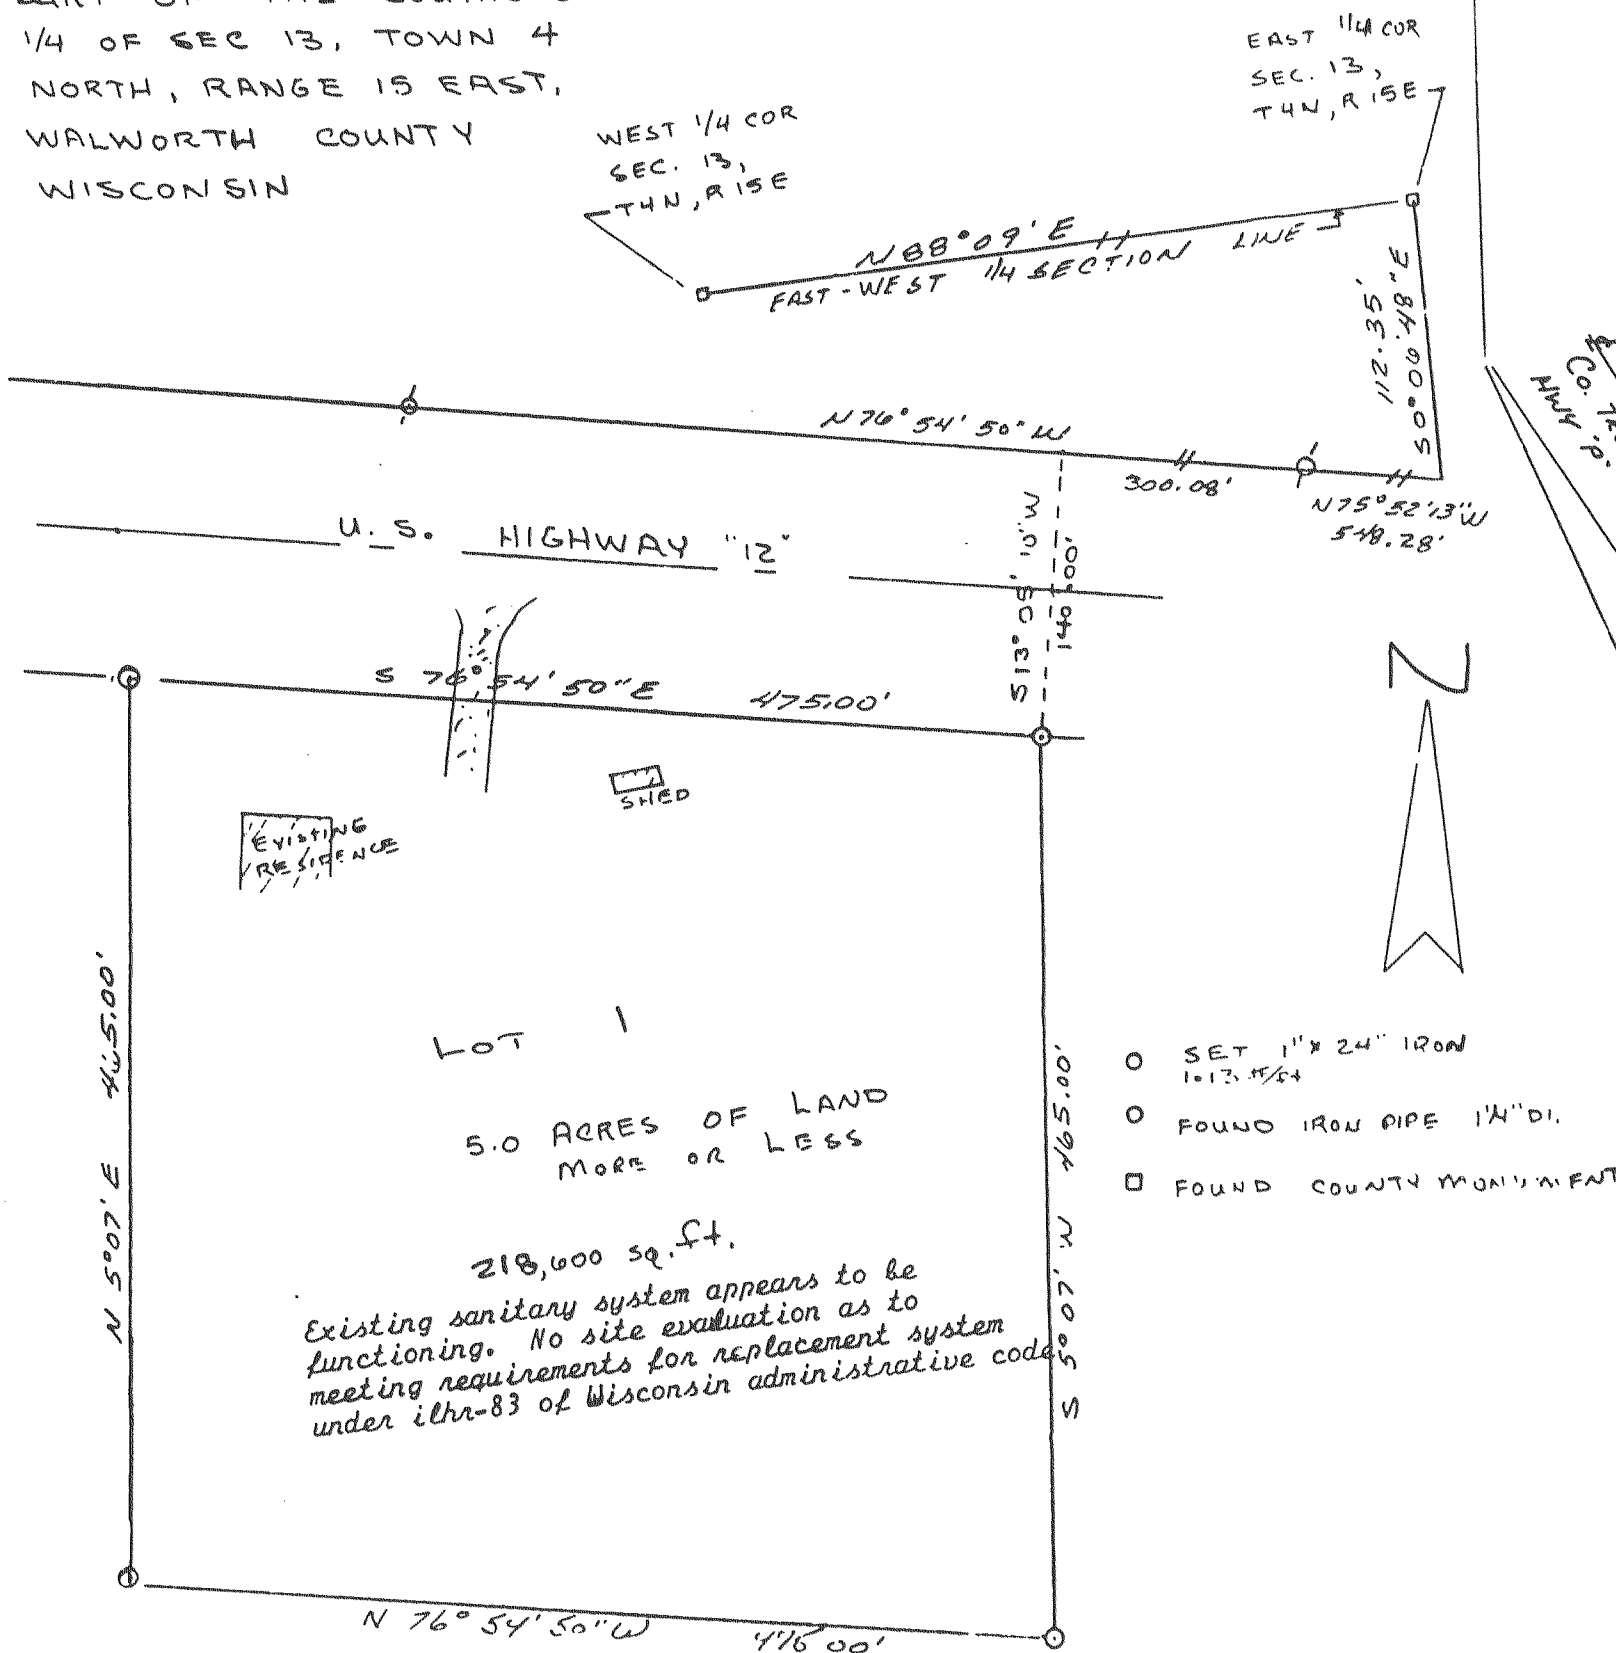 PART OF THE
1/4 OF SEC 13, TOWN 4
NORTH, RANGE 15 EAST,
WALWORTH COUNTY
WISCONSIN
WEST 1/4 COR
SEC. 13,
T4N, R15E
EAST 1/4 COR
SEC. 13,
T4N, R15E
N88°09'E
EAST-WEST 1/4 SECTION LINE
112.35'
S0°06'48"E
Co.
HWY "P"
N76°54'50"W
300.08'
N75°52'13"W
548.28'
U.S. HIGHWAY "12"
S13°05'10"W
140.00'
S 76°54'50"E 475.00'
SHED
EXISTING
RESIDENCE
N 5°07'E 465.00'
LOT 1
5.0 ACRES OF LAND
MORE OR LESS
218,600 sq.ft.
Existing sanitary system appears to be
functioning. No site evaluation as to
meeting requirements for replacement system
under ilhr-83 of Wisconsin administrative code
S 5°07'W 465.00'
N
SET 1"x 24" IRON
1.13 #/ft
FOUND IRON PIPE 1¼" DI.
FOUND COUNTY MONUMENT
N 76°54'50"W 475.00'